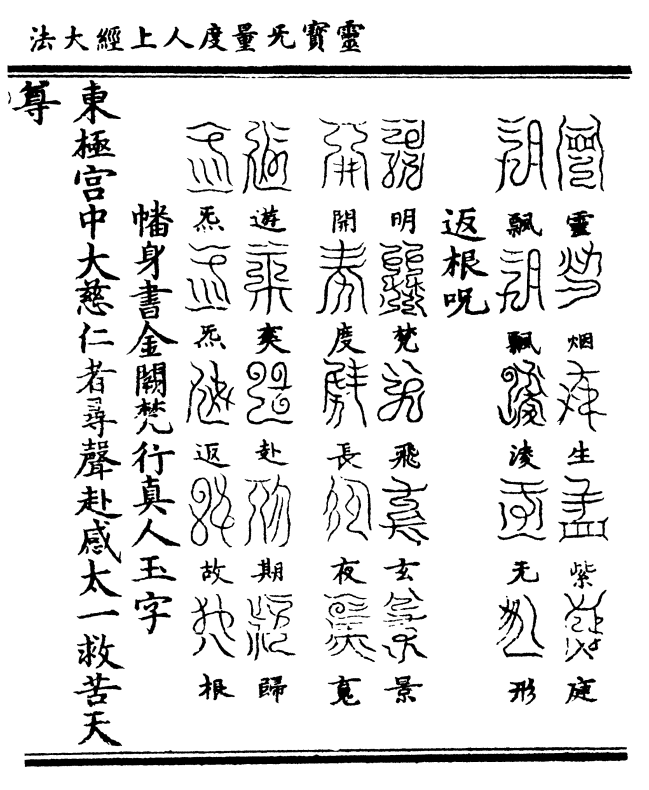 靈寶无量度人上經大法
靈烟生紫庭
飄飄淩无形
返根呪
明梵飛玄景
開度長夜䰟
遊爽赴期歸
炁炁返故根
幡身書金闕梵行真人玉字
東極宮中大慈仁者尋聲赴感太一救苦天
尊